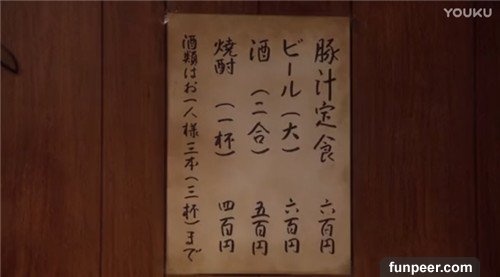 YOUKU
豚汁定食 六百円
ビール(大) 六百円
酒(二合) 五百円
焼酎(一杯) 四百円
酒類はお一人様三本(三杯)まで
funpeer.com